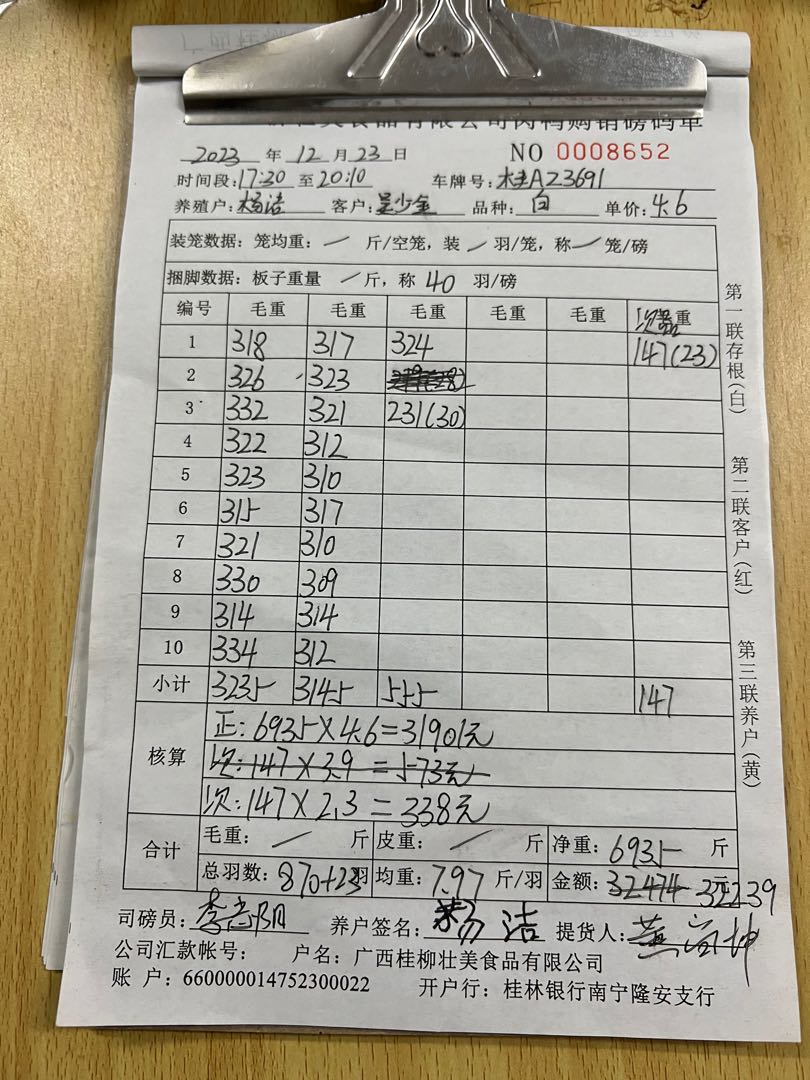 壮美食品有限公司肉鸭购销磅码单
2023 年 12 月 23 日 NO 0008652
时间段:17:30 至 20:10 车牌号:桂AZ3691
养殖户:杨洁 客户:吴少金 品种:白 单价:4.6
装笼数据:笼均重: / 斤/空笼,装 / 羽/笼,称 / 笼/磅
捆脚数据:板子重量 / 斤,称 40 羽/磅
编号 毛重 毛重 毛重 毛重 毛重 次 重
1 318 317 324 147(23)
2 326 323
3 332 321 231(30)
4 322 312
5 323 310
6 315 317
7 321 310
8 330 309
9 314 314
10 334 312
小计 3235 3145 555 147
核算 正:6935×4.6=31901元
次:147×3.9=573元
次:147×2.3=338元
合计 毛重: / 斤 皮重: / 斤 净重:6935 斤
总羽数:870+23羽 均重:7.97 斤/羽 金额:32474 元 32239
司磅员:李尚阳 养户签名:杨洁 提货人:黄
公司汇款帐号: 户名:广西桂柳壮美食品有限公司
账 户:660000014752300022 开户行:桂林银行南宁隆安支行
第一联存根(白)
第二联客户(红)
第三联养户(黄)